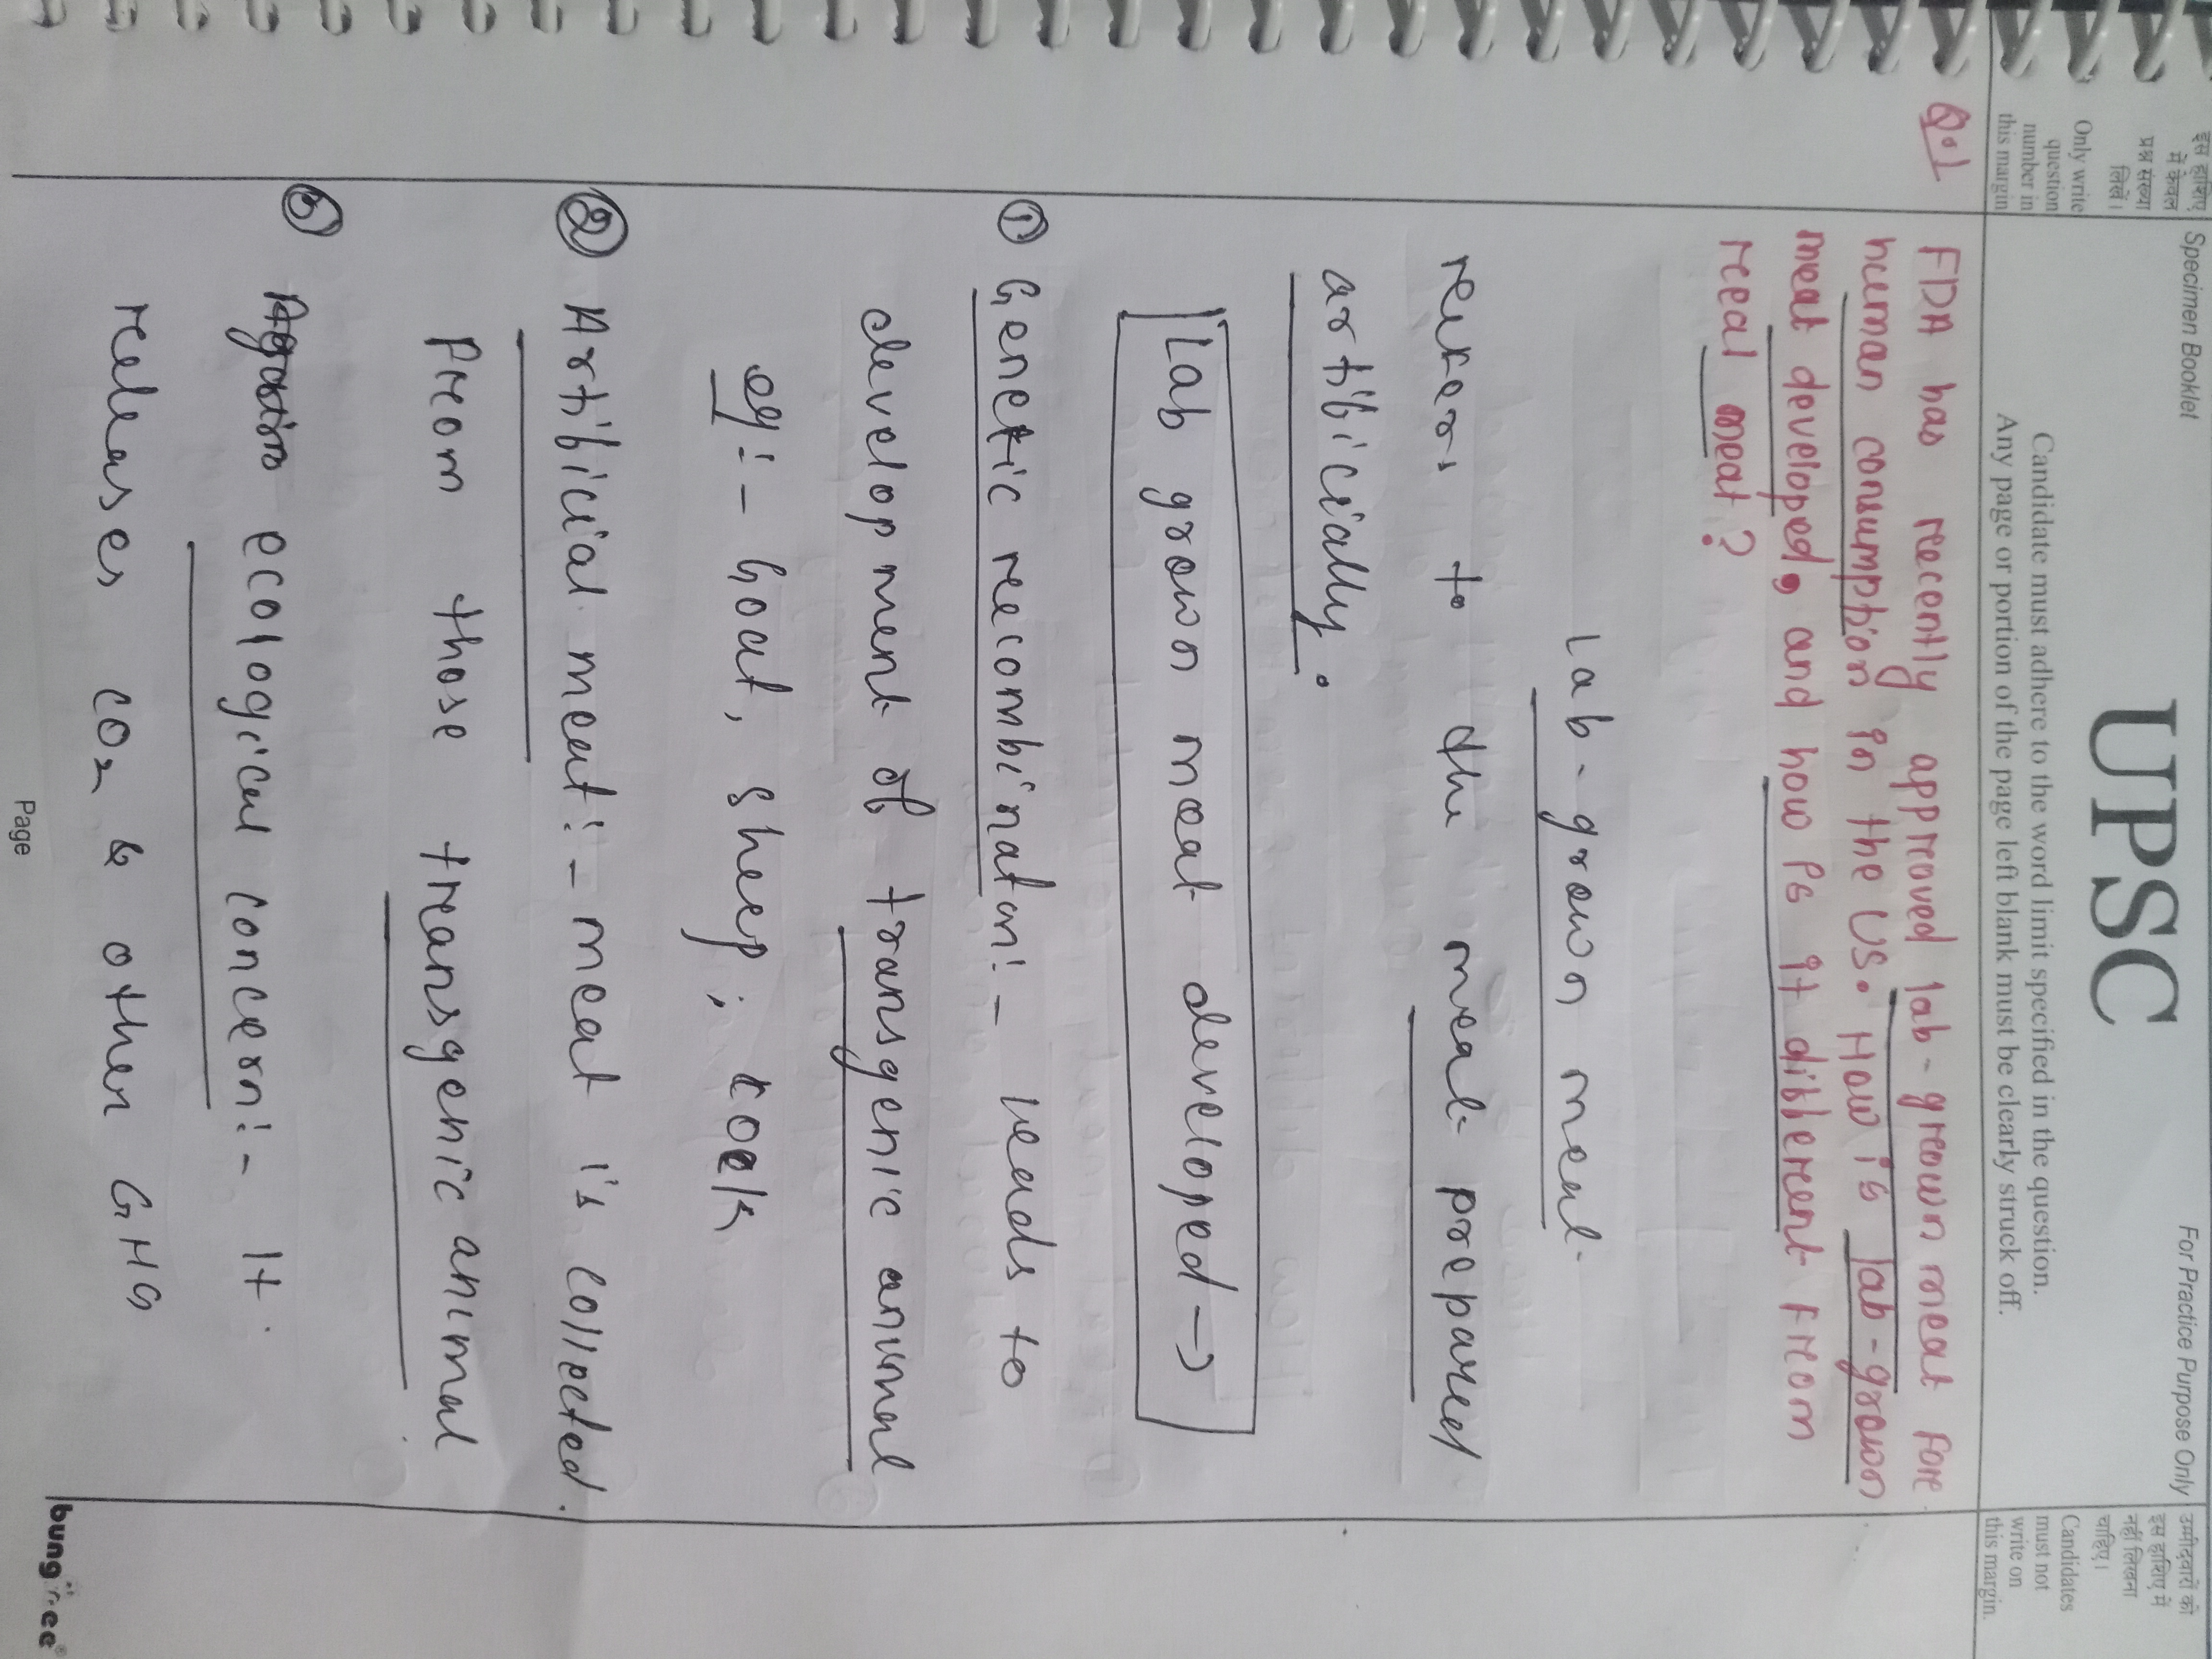 इस हाशिए
में केवल
प्रश्न संख्या
लिखें।
Only write
question
number in
this margin
Specimen Booklet
For Practice Purpose Only
UPSC
Candidate must adhere to the word limit specified in the question.
Any page or portion of the page left blank must be clearly struck off.
उम्मीदवारों को
इस हाशिए में
नहीं लिखना
चाहिए।
Candidates
must not
write on
this margin.
Q.1 FDA has recently approved lab-grown meat for
human consumption in the US. How is lab-grown
meat developed, and how is it different from
real meat?
Lab-grown meat
refers to the meat prepared
artificially.
Lab grown meat developed →
① Genetic recombination:- leads to
development of transgenic animal
eg:- Goat, Sheep, cock
② Artificial meat:- meat is collected
from those transgenic animal
③ ecological concern:- It
releases CO2 & other GHG
Page